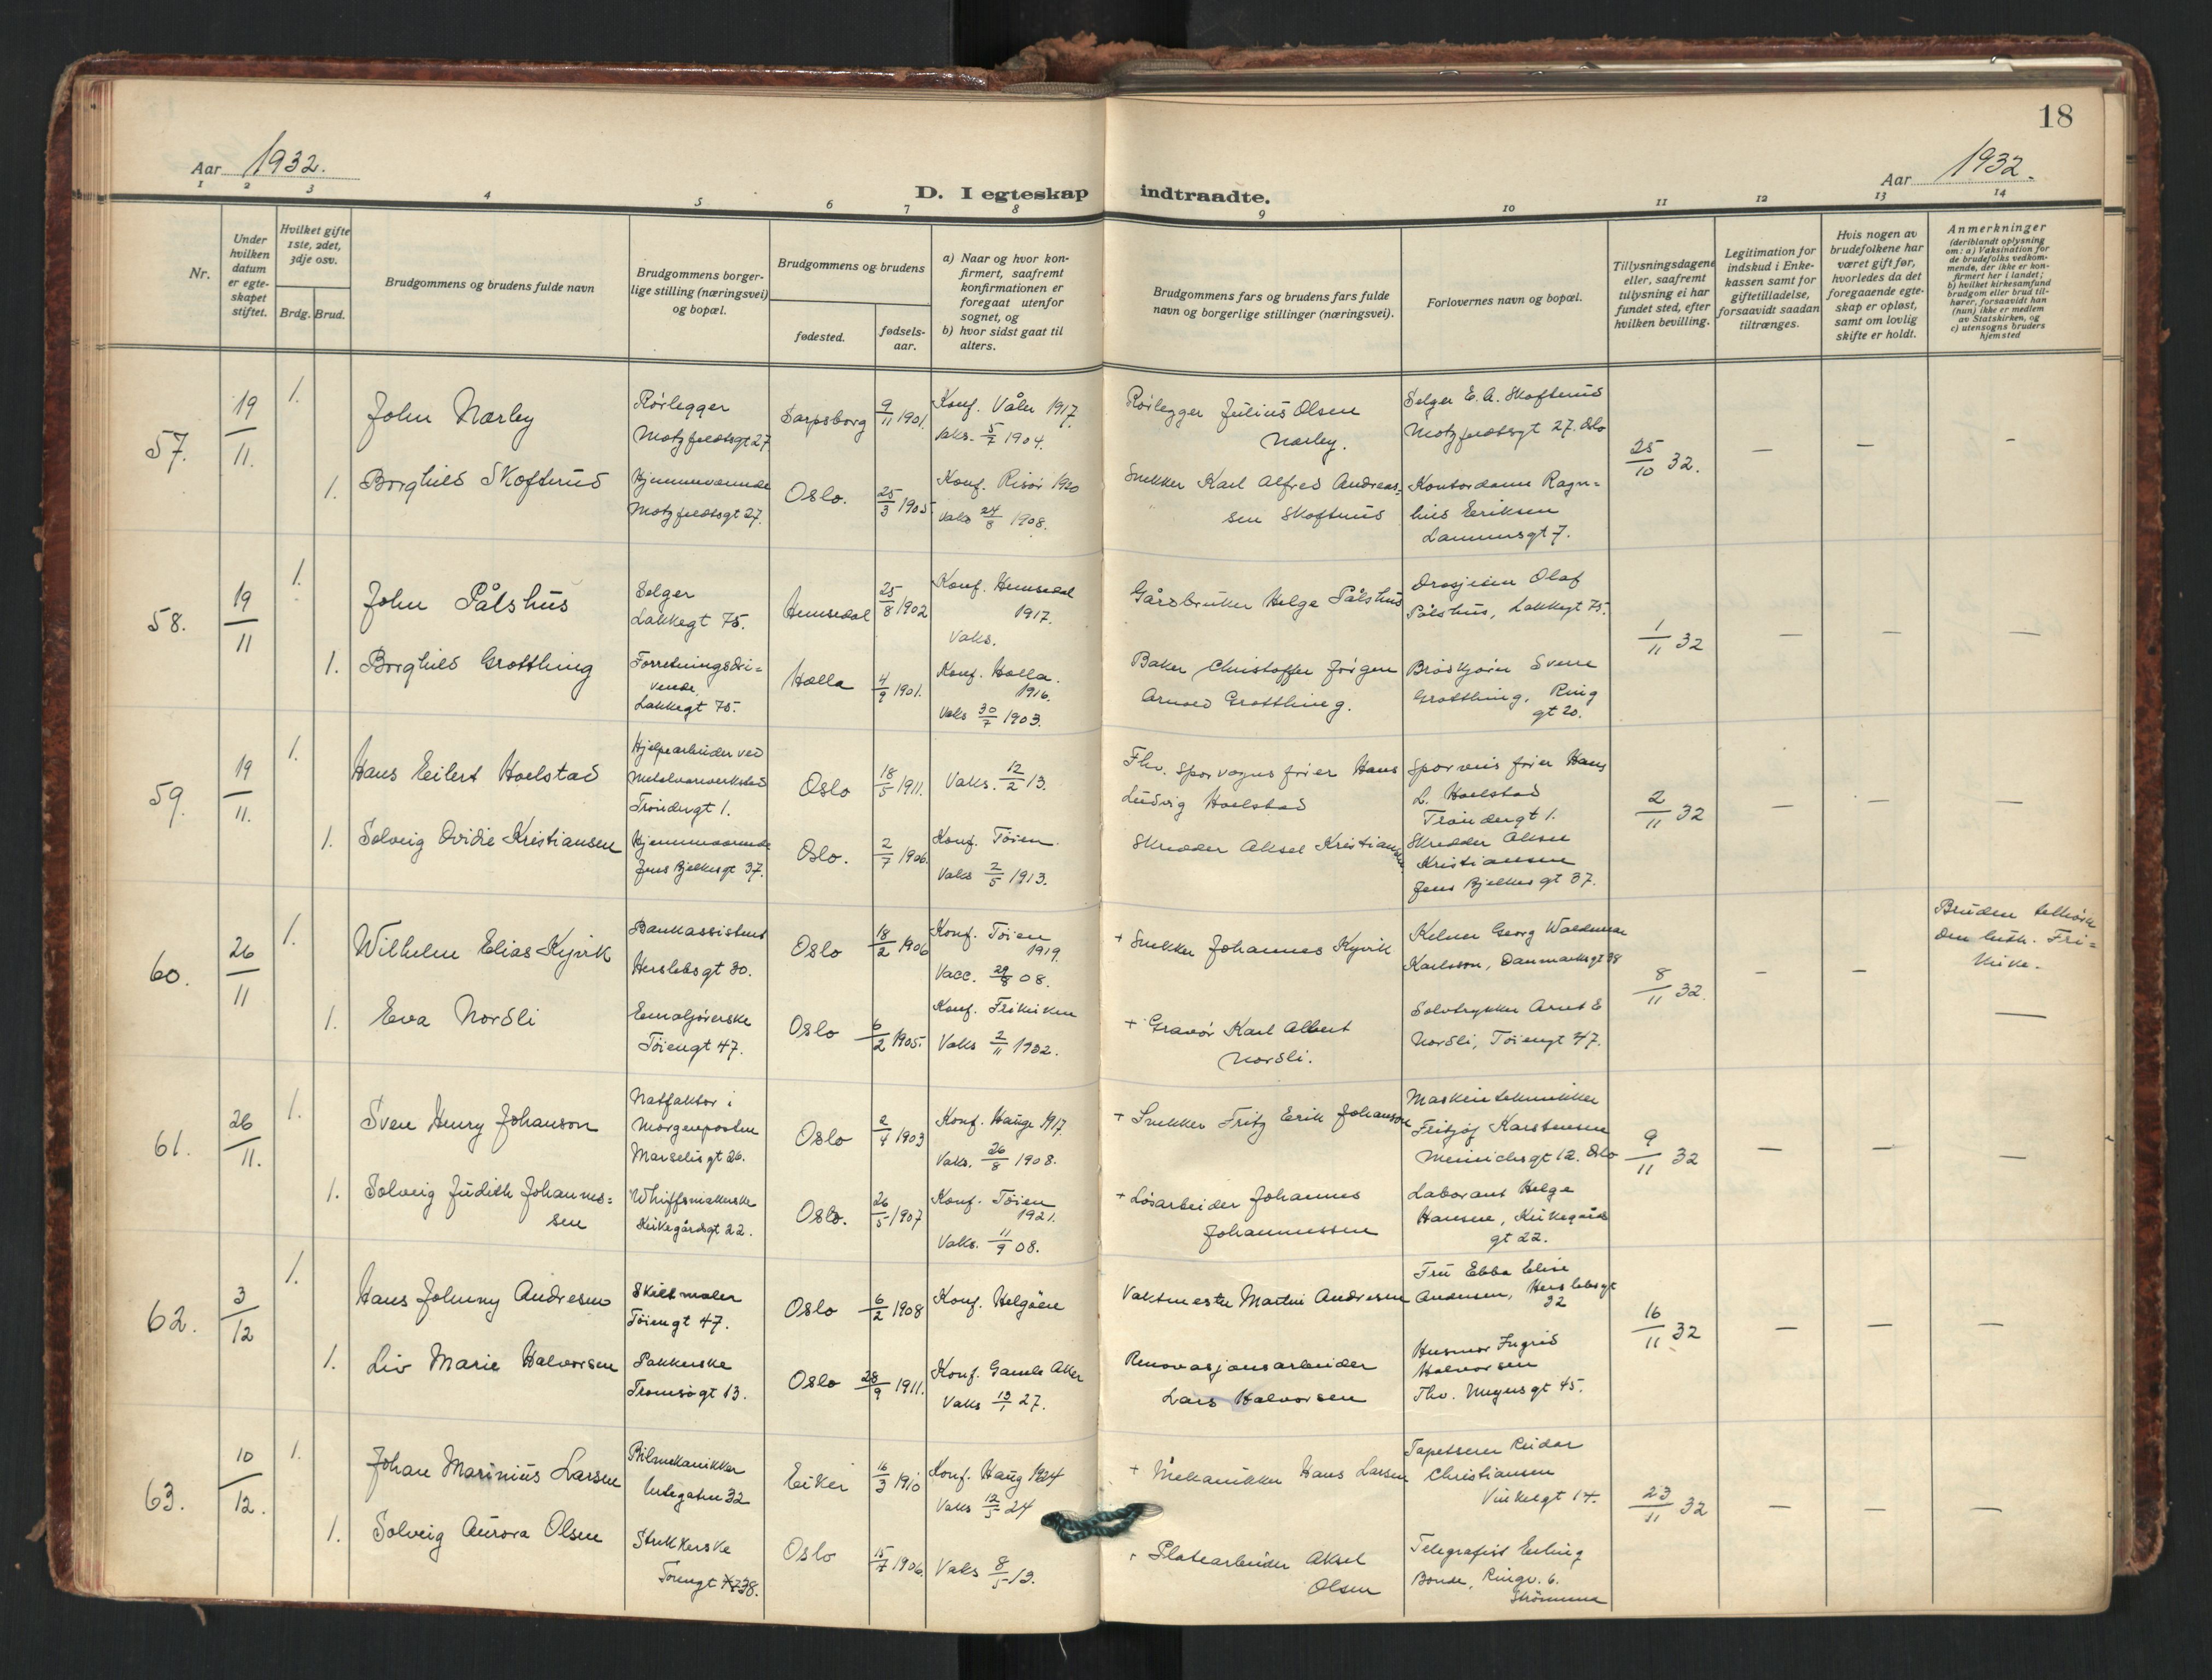 18
Aar 1932.
Aar 1932.
D. I egteskap indtraadte.
1 2 3 4 5 6 7 8 9 10 11 12 13 14
Nr.
Under hvilken datum er egteskapet stiftet.
Hvilket gifte 1ste, 2det, 3dje osv.
Brdg. Brud.
Brudgommens og brudens fulde navn
Brudgommens borgerlige stilling (næringsvei) og bopæl.
Brudgommens og brudens
fødested.
fødselsaar.
a) Naar og hvor konfirmert, saafremt konfirmationen er foregaat utenfor sognet, og
b) hvor sidst gaat til alters.
Brudgommens fars og brudens fars fulde navn og borgerlige stillinger (næringsvei).
Forlovernes navn og bopæl.
Tillysningsdagene eller, saafremt tillysning ei har fundet sted, efter hvilken bevilling.
Legitimation for indskud i Enkekassen samt for giftetilladelse, forsaavidt saadan tiltrænges.
Hvis nogen av brudefolkene har været gift før, hvorledes da det foregaaende egteskap er opløst, samt om lovlig skifte er holdt.
Anmerkninger
(deriblandt oplysning om: a) Vaksination for de brudefolks vedkommende, der ikke er konfirmert her i landet; b) hvilket kirkesamfund brudgom eller brud tilhører, forsaavidt han (hun) ikke er medlem av Statskirken, og c) utensogns bruders hjemsted
57.
19/11.
1.
John Nærby
Rørlegger
Motzfeldtsgt 27
Sarpsborg
9/11 1901.
Konf. Våler 1917.
Vaks. 5/7 1904.
Rørlegger Julius Olsen
Nærby.
Selger E. A. Skofterud
Motzfeldtsgt 27. Oslo
25/10 32.
— — —
1.
Borghild Skofterud
Hjemmeværende
Motzfeldtsgt 27.
Oslo.
25/3 1905
Konf. Risør 1920
Vaks 24/8 1908.
Snekker Karl Alfred Andreas-
sen Skofterud
Kontordame Ragn=
hild Eriksen
Lammersgt 7.
58.
19/11
1.
John Pålshus
Selger
Lakkegt 75.
Hemsedal
25/8 1902
Konf. Hemsedal
1917.
Vaks.
Gårdbruker Helge Pålshus
Drosjeeier Olaf
Pålshus, Lakkegt 75.
1/11 32
— — —
1.
Borghild Grottling
Forretningsdri=
vende.
Lakkegt 75.
Holla
4/9 1901.
Konf. Holla.
1916.
Vaks 30/7 1903.
Baker Christoffer Jørgen
Arnold Grottling.
Brødkjører Svene
Grottling, Ring
gt 20.
59.
19/11.
1.
Hans Eilert Hoelstad
Hjelpearbeider ved
Metalvareverksted
Trøndergt 1.
Oslo
18/5 1911.
Vaks. 12/2 13.
Fhv. Sporvognsfører Hans
Ludvig Hoelstad
Sporveisfører Hans
L. Hoelstad
Trøndergt 1.
2/11 32
— — —
1.
Solveig Ovidie Kristiansen
Hjemmeværende
Jens Bjelkesgt 37.
Oslo.
2/7 1906.
Konf. Tøien.
Vaks 2/5 1913.
Skredder Aksel Kristiansen
Skredder Aksel
Kristiansen
Jens Bjelkes gt 37.
60.
26/11
1.
Wilhelm Elias Kyvik
Bankassistent
Herslebsgt 30.
Oslo
18/2 1906
Konf. Tøien
1919.
Vacc. 29/8 08.
+ Snekker Johannes Kyvik
Kelner Georg Waldemar
Karlsson, Danmarksgt 38
8/11 32.
— —
Bruden tilhører
den luth. Fri=
kirke.
1.
Eva Nordli
Emaljørerske
Tøiengt 47.
Oslo
6/2 1905.
Konf. Frikirken
Vaks 2/11 1902.
+ Gravør Karl Albert
Nordli.
Sølvtrykker Arnt E
Nordli, Tøiengt 47.
—
61.
26/11.
1.
Sven Henry Johanson
Natfaktor i
Morgenposten
Marselis gt 26.
Oslo
2/4 1903
Konf. Hauge 1917.
Vaks. 26/8 1908.
+ Snekker Fritz Erik Johanson
Maskintekniker
Fritjof Karstensen
Meinichsgt 12. Oslo
9/11 32
— — —
1.
Solveig Judith Johannes=
sen
Whiffsmakerske
Kirkegårdsgt 22.
Oslo.
26/5 1907
Konf. Tøien
1921.
Vaks. 11/9 08.
+ Løsarbeider Johannes
Johannessen
Laborant Helge
Hansen, Kirkegårds
gt 22.
62.
3/12
1.
Hans Johnny Andresen
Skiltmaler
Tøiengt 47.
Oslo
6/2 1908
Konf. Helgøen
Vaktmester Martin Andresen
Fru Ebba Elise
Andersen, Herslebsgt
32
16/11 32
— — —
1.
Liv Marie Halvorsen
Pakkerske
Tromsøgt 13.
Oslo
28/9 1911.
Konf. Gamle Aker
Vaks 13/1 27.
Renovasjonsarbeider
Lars Halvorsen
Husmor Ingrid
Halvorsen
Thv. Meyersgt 45.
63.
10/12.
1.
Johan Marinius Larsen
Bilmekanikker
Urtegaten 32
Eiker
16/3 1910
Konf. Haug 1924
Vaks 12/5 24
+ Mekanikker Hans Larsen
Tapetserer Reidar
Christiansen
Vinkelgt 14.
23/11 32
— — —
1.
Solveig Aurora Olsen
Strikkerske
Tøiengt 38.
Oslo
15/7 1906.
Vaks 8/5 13.
+ Platearbeider Aksel
Olsen
Telegrafist Erling
Bonde, Ringv. 6.
Strømmen